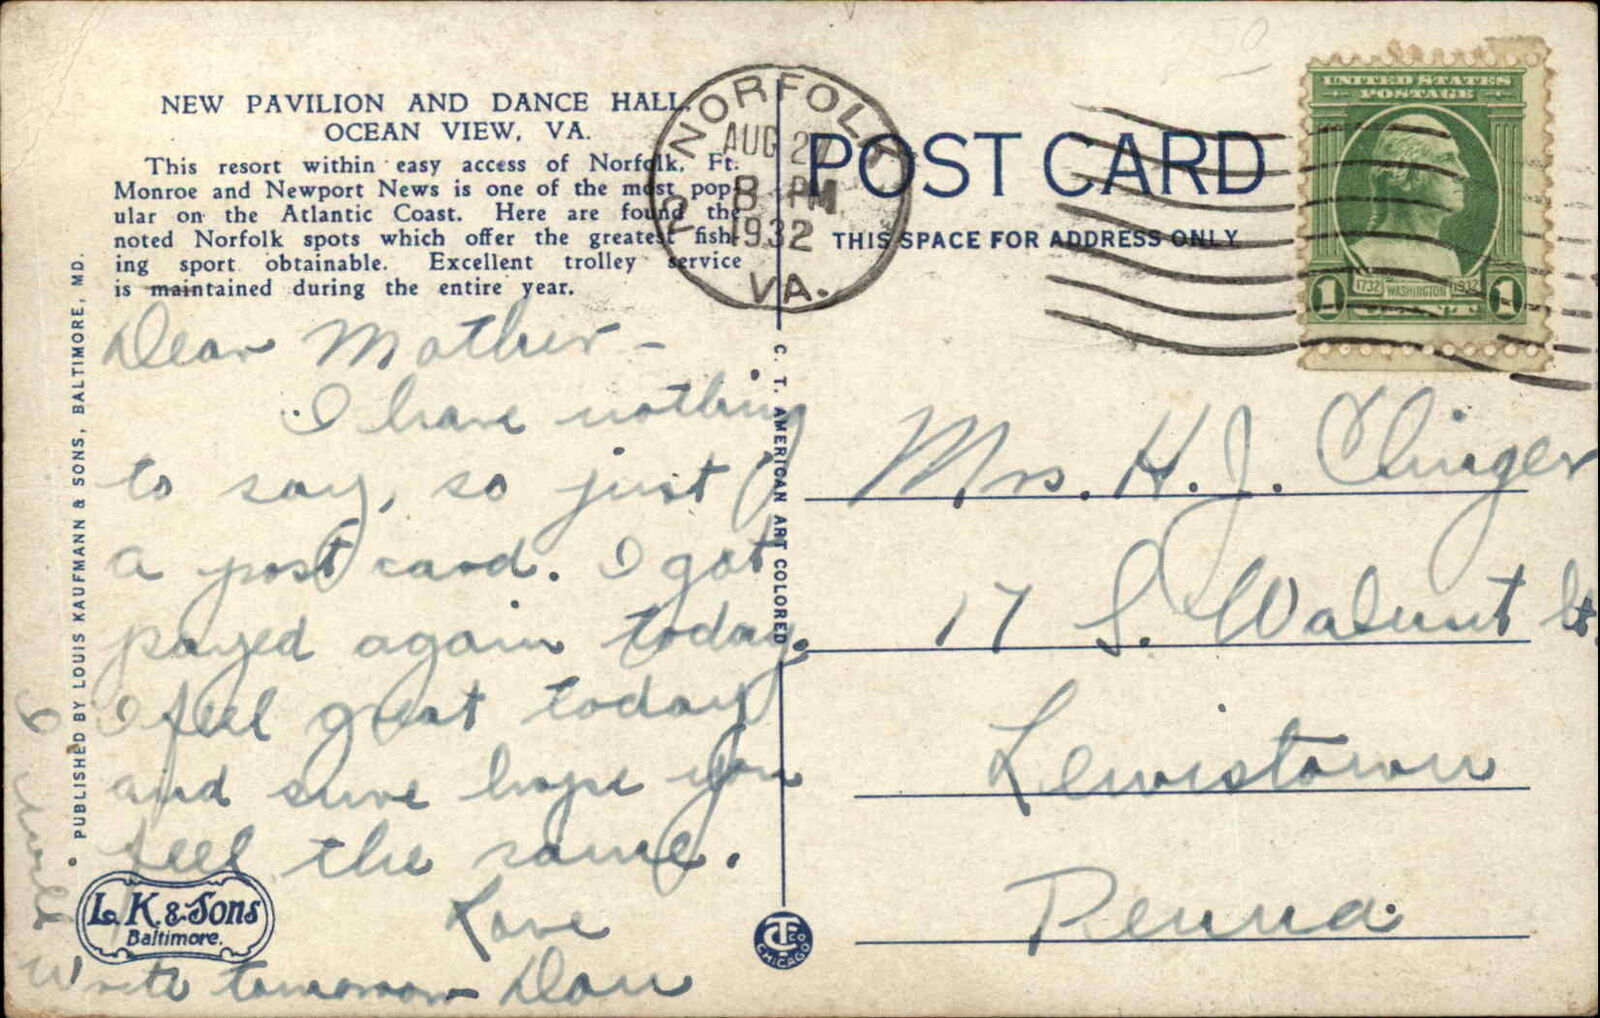 NEW PAVILION AND DANCE HALL,
OCEAN VIEW, VA.
This resort within easy access of Norfolk, Ft.
Monroe and Newport News is one of the most pop-
ular on the Atlantic Coast. Here are found the
noted Norfolk spots which offer the greatest fish-
ing sport obtainable. Excellent trolley service
is maintained during the entire year.
Dear Mother -
I have nothing
to say, so just
a post card. I got
payed again today.
I feel great today
and sure hope you
feel the same.
Love
Dan
I will
write tomorrow
PUBLISHED BY LOUIS KAUFMANN & SONS, BALTIMORE, MD.
L. K. & Sons
Baltimore.
C. T. AMERICAN ART COLORED
CT CO
CHICAGO
NORFOLK
AUG 27
8 PM
1932
VA.
POST CARD
THIS SPACE FOR ADDRESS ONLY
UNITED STATES
POSTAGE
1732 WASHINGTON 1932
1 1
Mrs. H. J. Clinger
17 S. Walnut St.
Lewistown
Penna.